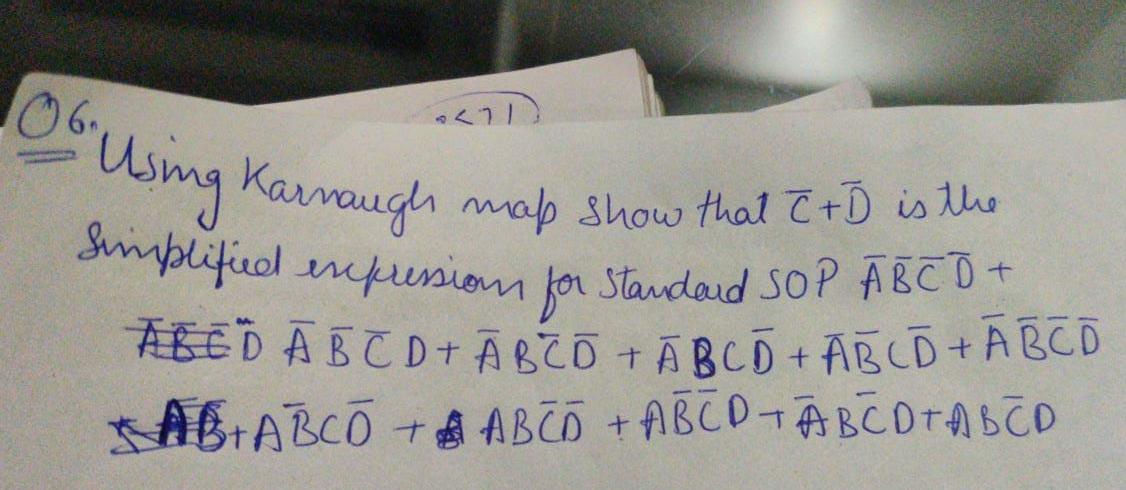 Q6. Using Karnaugh map show that C̅+D̅ is the
Simplified expression for Standard SOP A̅B̅C̅D̅ +
A̅B̅C̅D + A̅BC̅D̅ + A̅BCD̅ + A̅B̅CD̅ + A̅B̅C̅D̅
+ AB̅CD̅ + ABC̅D̅ + AB̅C̅D + A̅BC̅D + ABC̅D